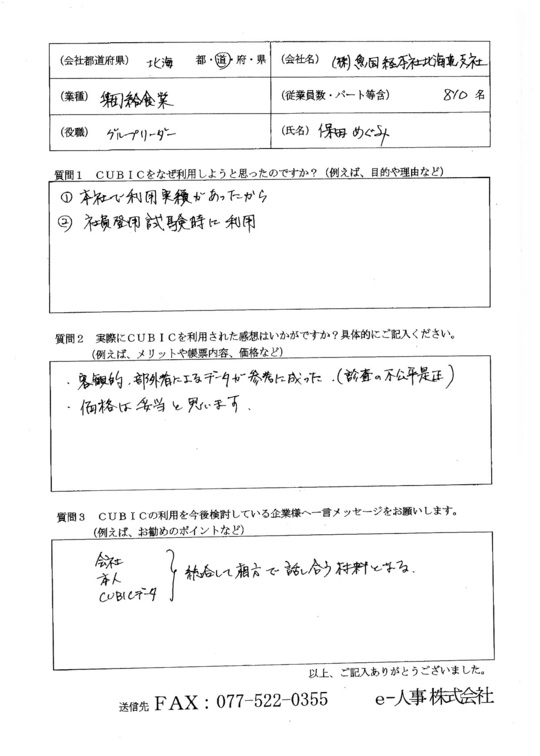 (会社都道府県) 北海 都・道・府・県 (会社名) (株)魚国総本社北海道支社
(業種) 集団給食業 (従業員数・パート等含) 810 名
(役職) グループリーダー (氏名) 保田 めぐみ
質問1 CUBICをなぜ利用しようと思ったのですか?(例えば、目的や理由など)
① 本社で利用実績があったから
② 社員登用試験時に利用
質問2 実際にCUBICを利用された感想はいかがですか?具体的にご記入ください。
(例えば、メリットや帳票内容、価格など)
・客観的、部外者によるデータが参考に成った。(診査の不公平是正)
・価格は妥当と思います。
質問3 CUBICの利用を今後検討している企業様へ一言メッセージをお願いします。
(例えば、お勧めのポイントなど)
会社
本人
CUBICデータ
統合して相方で話し合う材料となる。
以上、ご記入ありがとうございました。
送信先 FAX:077-522-0355 e-人事株式会社